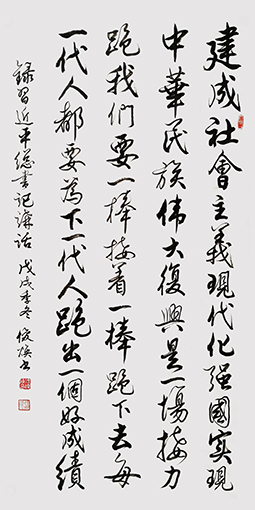 建成社會主義現代化强國實現
中華民族偉大復興是一場接力
跑我们要一棒接着一棒跑下去每
一代人都要為下一代人跑出一個好成績
錄習近平總書記講話 戊戌季冬 俊煥書